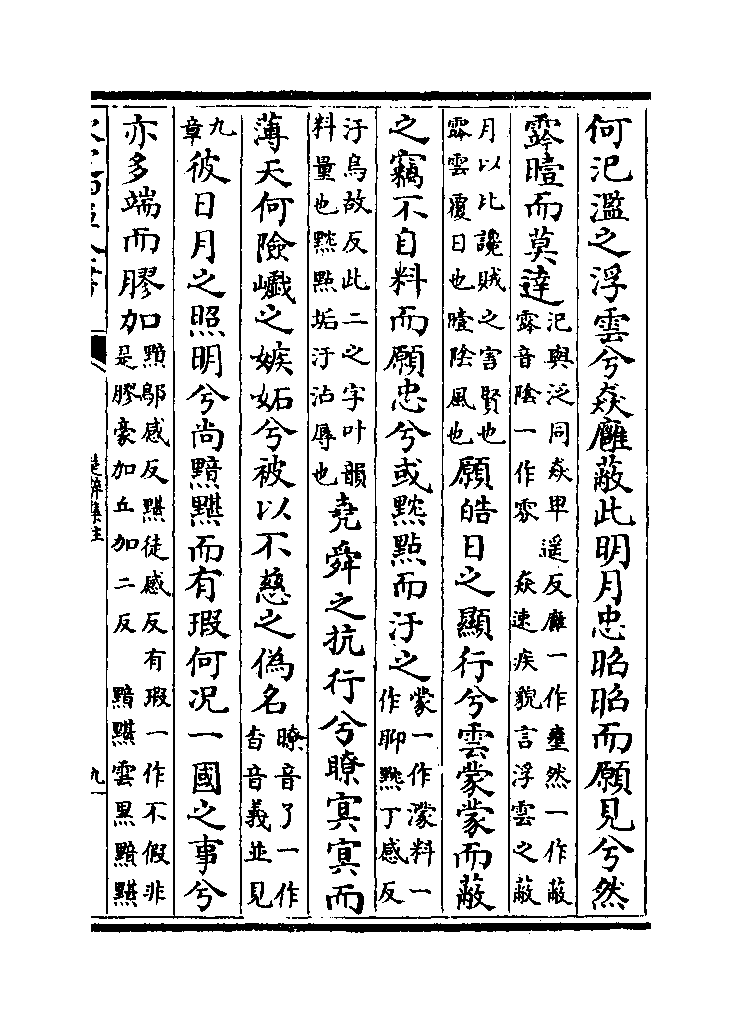 何氾濫之浮雲兮猋廱蔽此明月忠昭昭而願見兮然
霠曀而莫達氾與泛同猋卑遥反廱一作壅然一作蔽
霠音陰一作雺 猋速疾貌言浮雲之蔽
月以比讒賊之害賢也
霠雲覆日也曀陰風也願皓日之顯行兮雲蒙蒙而蔽
之竊不自料而願忠兮或黕點而汙之蒙一作濛料一
作聊黕丁感反
汙烏故反此二之字叶韻
料量也黕點垢汙沾辱也堯舜之抗行兮瞭寘寘而
薄天何險巇之嫉妬兮被以不慈之偽名瞭音了一作
杳音義並見
九
章彼日月之照明兮尚黯黮而有瑕何况一國之事兮
亦多端而膠加黯鄔感反黮徒感反有瑕一作不假非
是膠豪加丘加二反 黯黮雲黒黯黮
楚辭集注
九